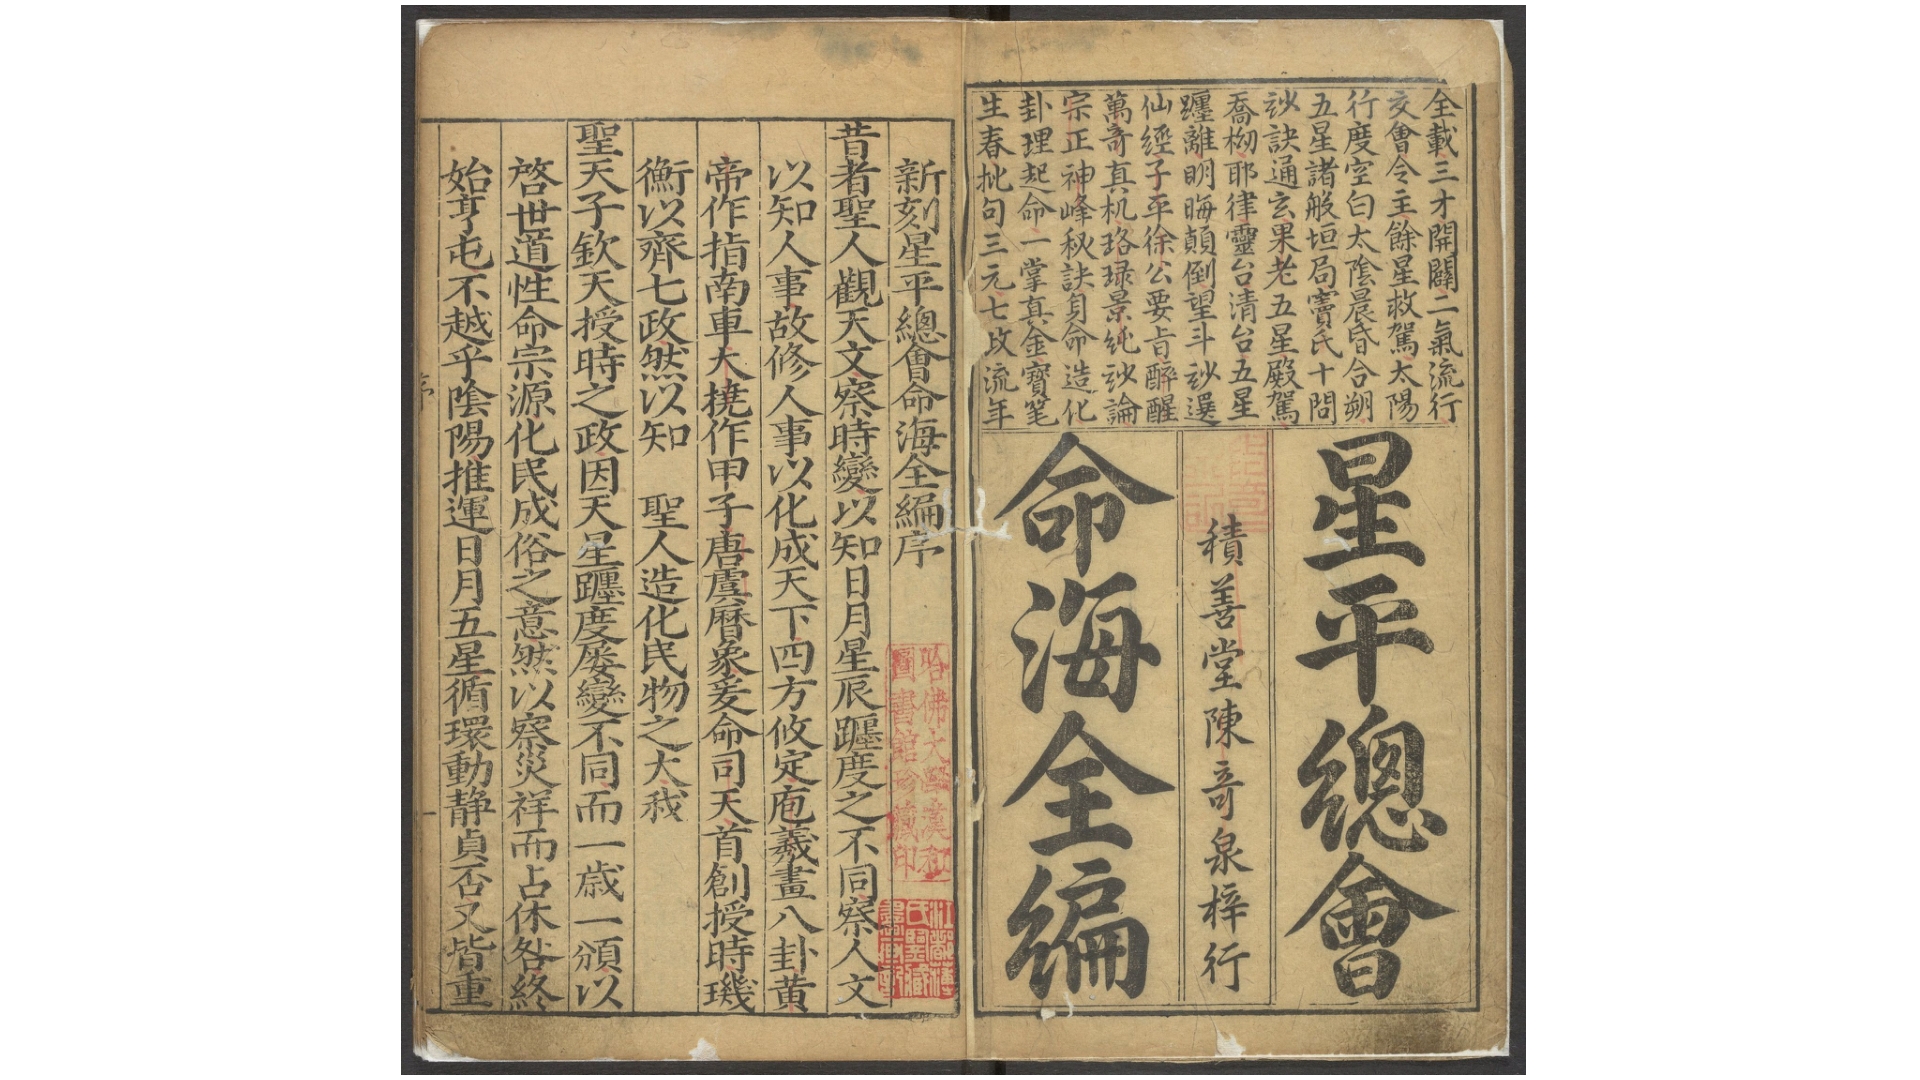 全載三才開闢二氣流行
交會令主餘星救駕太陽
行度空白太陰晨昏合朔
五星諸般垣局竇氏十問
玅訣通玄果老五星殿駕
喬栁耶律靈台清台五星
躔離明晦顛倒望斗玅選
仙經子平徐公要旨醉醒
萬竒真机珞琭景純玅論
宗正神峰秘訣身命造化
卦理起命一掌真金寶笔
生春批句三元七政流年
星平總會
積善堂陳竒泉梓行
命海全編
新刻星平總會命海全編序
昔者聖人觀天文察時變以知日月星辰躔度之不同察人文
以知人事故修人事以化成天下四方攸定庖羲畫八卦黄
帝作指南車大撓作甲子唐虞曆象爰命司天首創授時璣
衡以齊七政然以知 聖人造化民物之大哉
聖天子欽天授時之政因天星躔度屡變不同而一歳一頒以
啓世道性命宗源化民成俗之意然以察災祥而占休咎終
始亨屯不越乎陰陽推運日月五星循環動静貞否又皆重
序
哈佛大學漢和
圖書館珍藏印